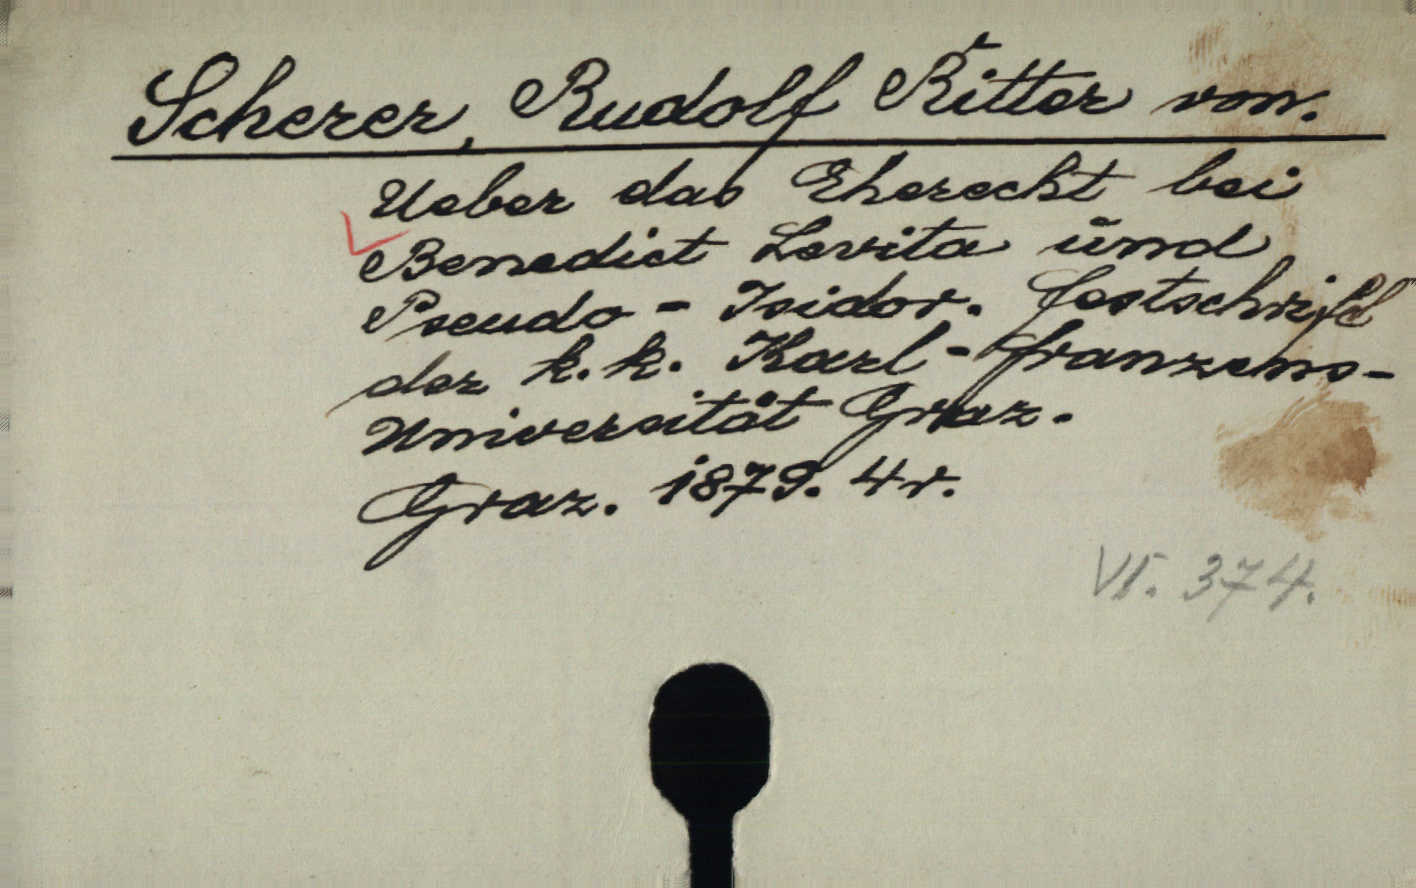 Scherer, Rudolf Ritter von.
Ueber das Eherecht bei
Benedict Levita und
Pseudo - Isidor. Festschrift
der k. k. Karl - Franzens-
Universität Graz.
Graz. 1879. 4r.
VI. 374.